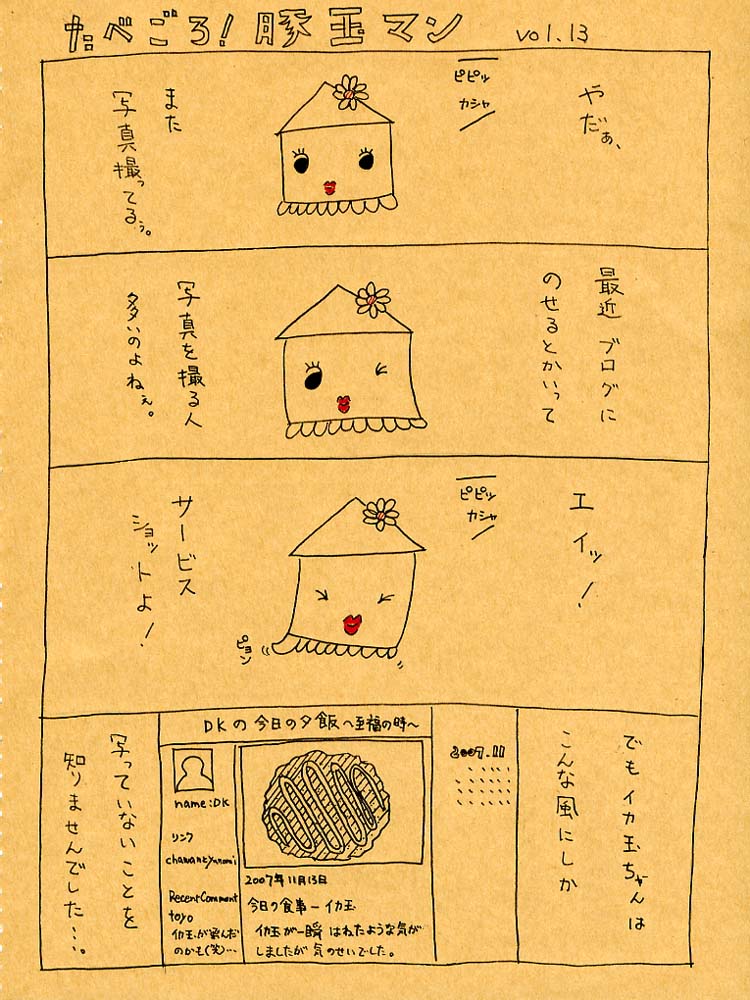 たべごろ！豚玉マン vol.13
やだぁ、
ピピッ
カシャ
また
写真撮ってるぅ。
最近 ブログに
のせるとかいって
写真を撮る人
多いのよねぇ。
エイッ！
ピピッ
カシャ
サービス
ショットよ！
ピョン
でもイカ玉ちゃんは
こんな風にしか
2007.11
DKの今日の夕飯〜至福の時〜
name:DK
リンク
chawantyunomi
Recent Comment
toyo
イカ玉が飛んだ
のかも(笑)…
2007年11月13日
今日の食事ーイカ玉
イカ玉が一瞬 はねたような気が
しましたが 気のせいでした。
写っていないことを
知りませんでした…。